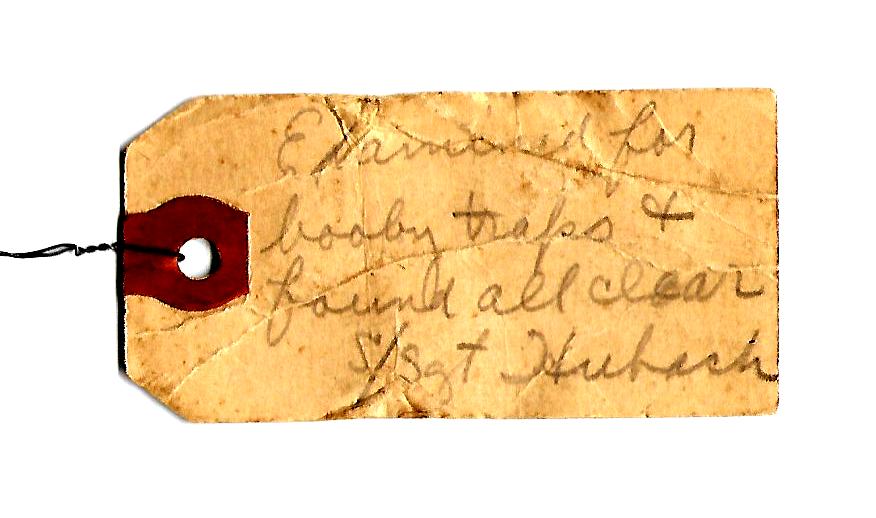 Examined for
booby traps &
found all clear
S/Sgt Hubach